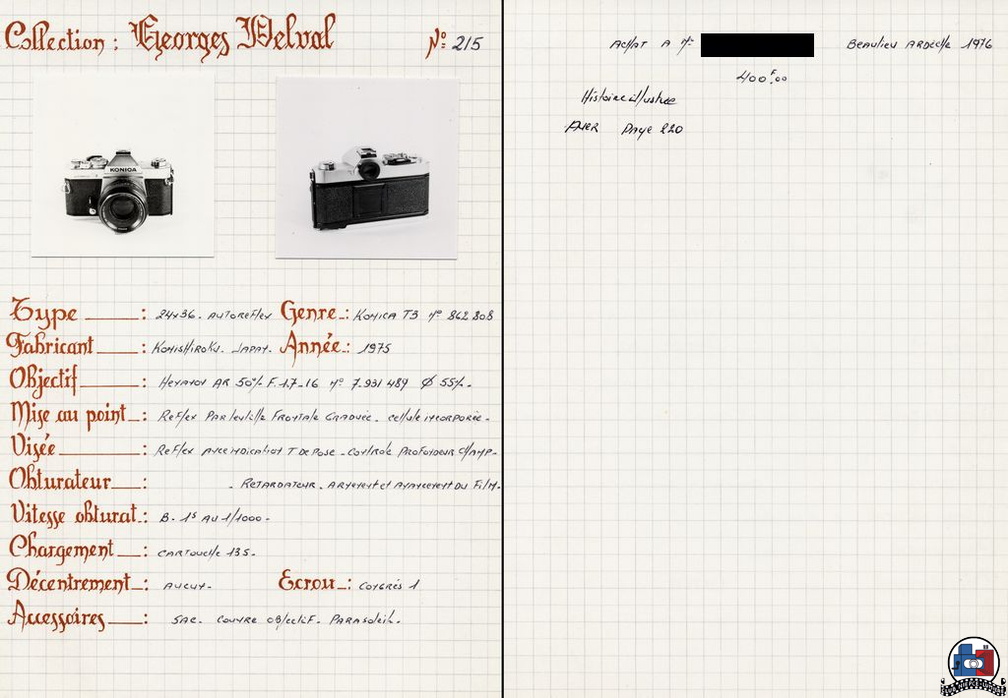 Collection : Georges Delval Nº 215
KONICA
Type : 24x36. AUTOREFLEX Genre : KONICA T3 Nº 862 808
Fabricant : KONISHIROKU. JAPAN. Année : 1975
Objectif : HEXANON AR 50% F.1.7-16 Nº 7.931 489 Ø 55%.
Mise au point : REFLEX PAR lentille FRONTALE GRADUÉE. Cellule INCORPORÉE.
Visée : REFLEX AVEC INDICATION T DE POSE - CONTROLE PROFONDEUR CHAMP-
Obturateur : . RETARDATEUR. ARMEMENT et AVANCEMENT DU FILM.
Vitesse obturat. : B. 1S AU 1/1000.
Chargement : CARTOUCHE 135.
Décentrement : AUCUN. Ecrou : CONGRÈS 1
Accessoires : SAC. COUVRE OBJECTIF. PARASOLEIL.
ACHAT A Mr BEAULIEU ARDECHE 1976
400F,00
Histoire illustrée
AUER Page 220